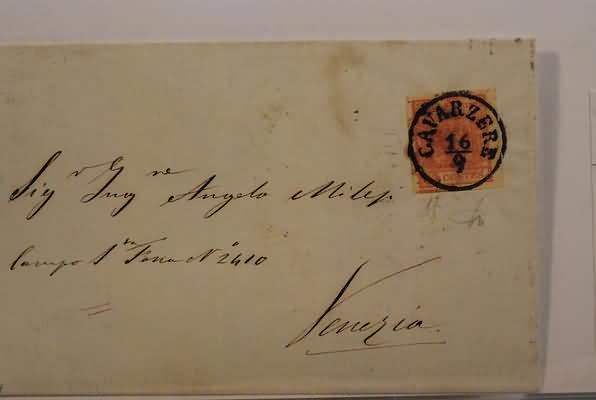 CAVARZERE
16
9
Sigr Ingre Angelo Milesi
Campo Sn Fosca No 2410
Venezia.